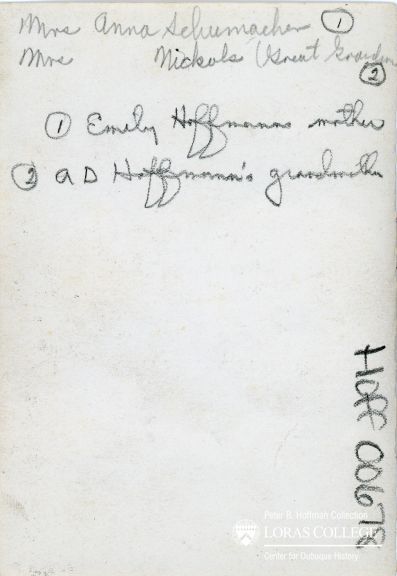 Mrs Anna Schumacher ①
Mrs Nickols (Great Grandm
②
① Emily Hoffmanns mother
② A D Hoffmann's grandmother
Hoff 00678
Peter B. Hoffman Collection
LORAS COLLEGE
Center for Dubuque History